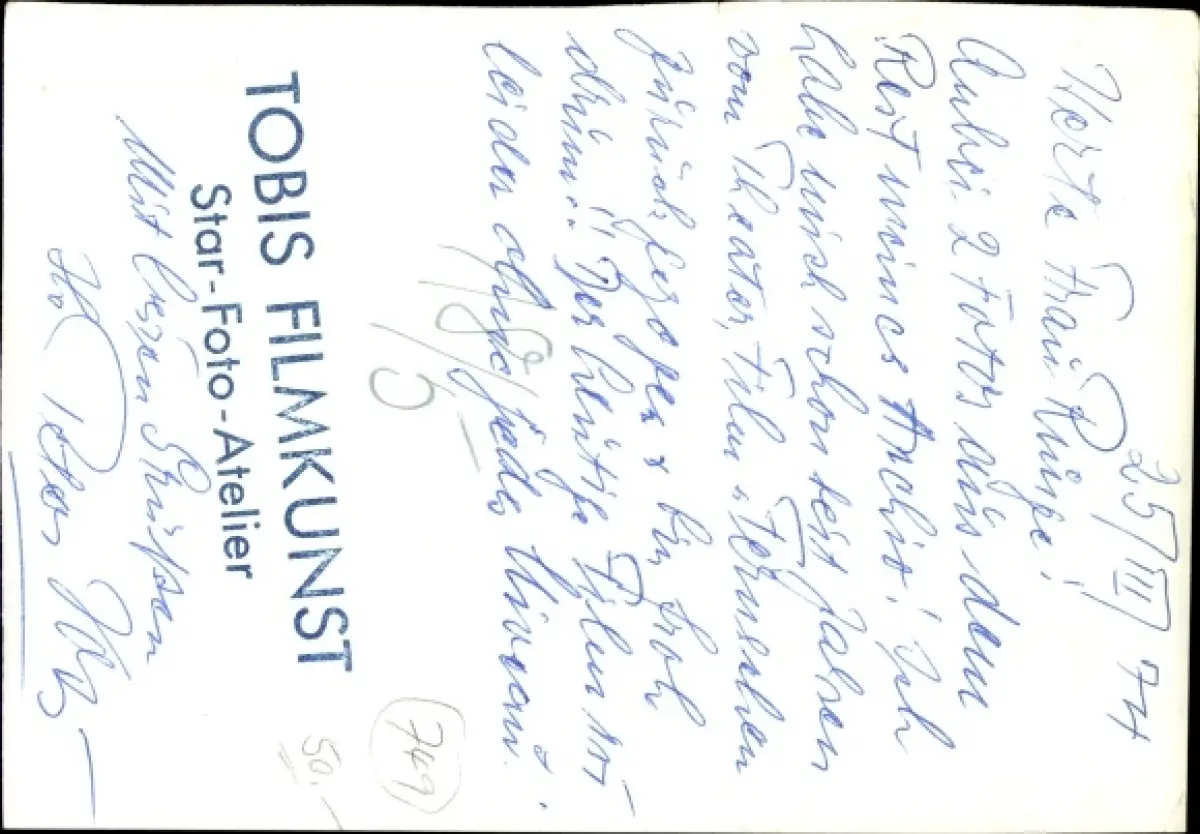 25/III/74
Werte Frau Runge!
Anbei 2 Fotos aus dem
Rest meines Archivs! Ich
habe mich schon seit Jahren
vom Theater, Film u. Fernsehen
zurückgezogen & bin froh
drüm!! Der heutige Film ist
leider ohne jedes Niveau.
18/
5,-
TOBIS FILMKUNST
Star-Foto-Atelier
Mit besten Grüssen
Ihr Peter
749
50.-